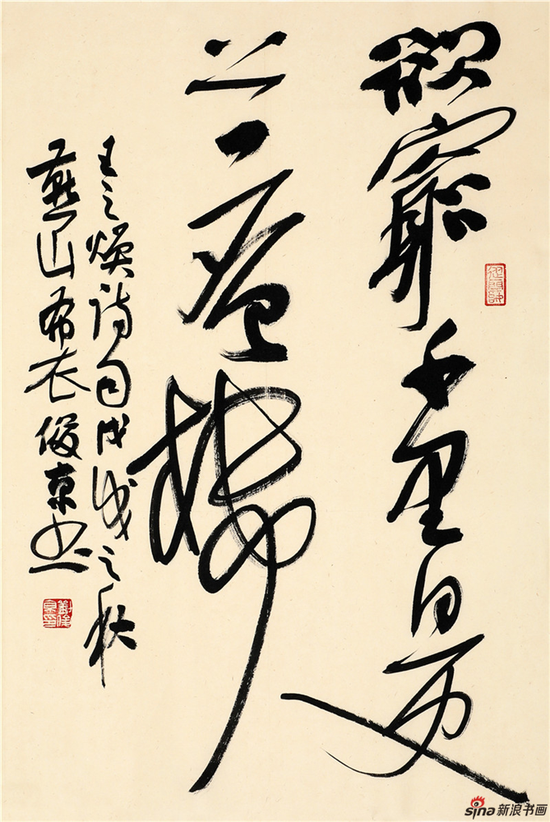 欲窮千里目更
上一層樓
王之焕诗句戊戌之秋
燕山布衣俊東书
sina新浪书画